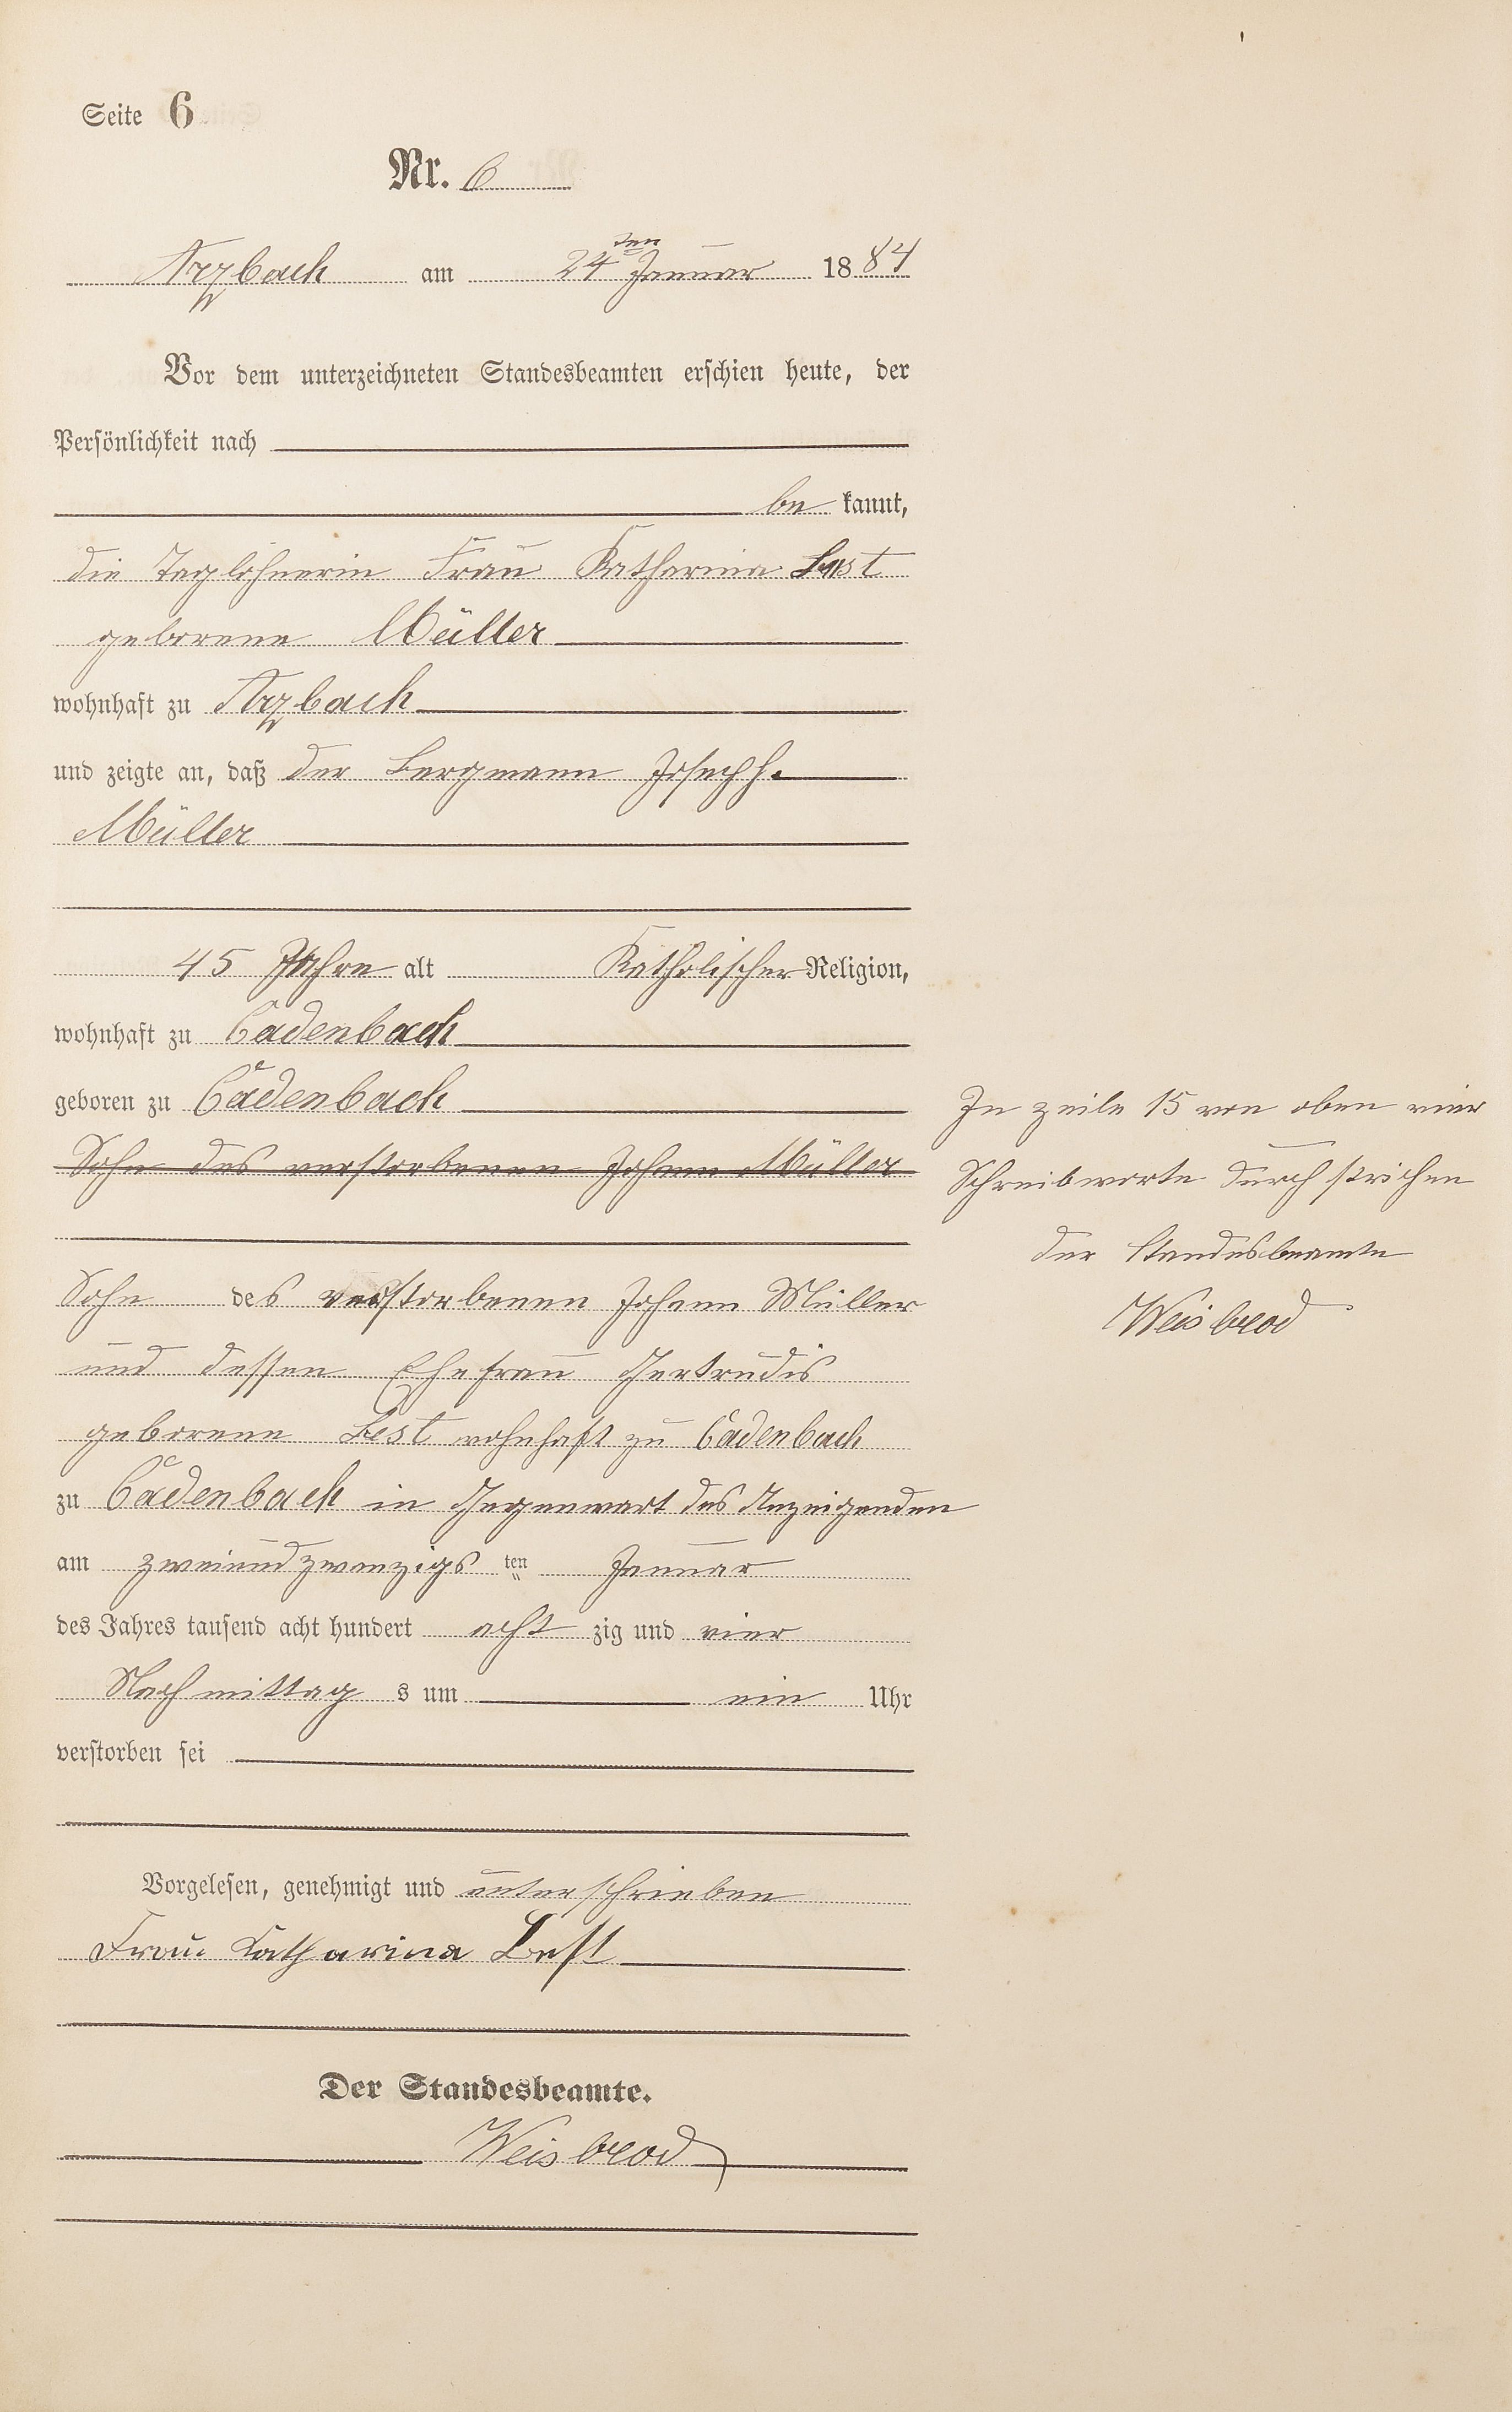 Seite 6
Nr. 6
Arzbach am 24ten Januar 1884
Vor dem unterzeichneten Standesbeamten erschien heute, der
Persönlichkeit nach
be kannt,
die Taglöhnerin Frau Katharina Best
geborene Müller
wohnhaft zu Arzbach
und zeigte an, daß der Bergmann Joseph
Müller
45 Jahre alt Katholischer Religion,
wohnhaft zu Cadenbach
geboren zu Cadenbach
Sohn des verstorbenen Johann Müller
Sohn des verstorbenen Johann Müller
und dessen Ehefrau Gertrudis
geborene Best wohnhaft zu Cadenbach
zu Cadenbach in Gegenwart des Anzeigenden
am zweiundzwanzigs ten Januar
des Jahres tausend acht hundert acht zig und vier
Nachmittag s um ein Uhr
verstorben sei
Vorgelesen, genehmigt und unterschrieben
Frau Katharina Best
Der Standesbeamte.
Weisbrod
In zeile 15 von oben vier
Schreibworte durchstrichen
der Standesbeamte
Weisbrod